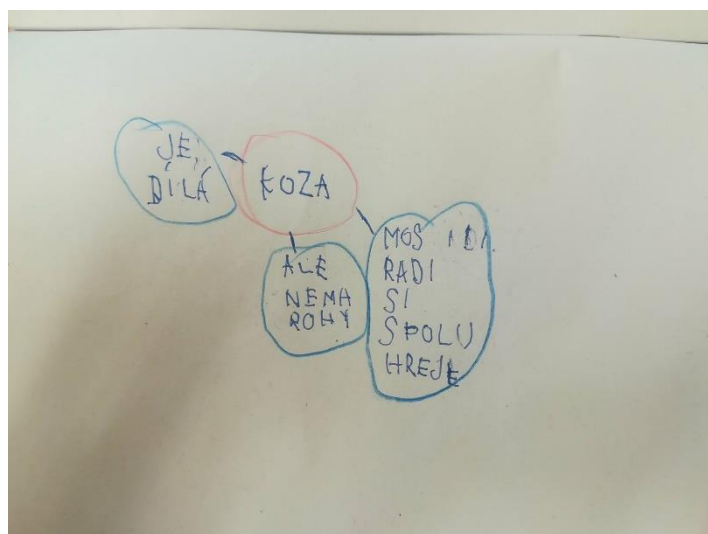 JE,
BÍLÁ
KOZA
ALE
NEMA
ROHY
MOS
RADI
SI
SPOLU
HREJE